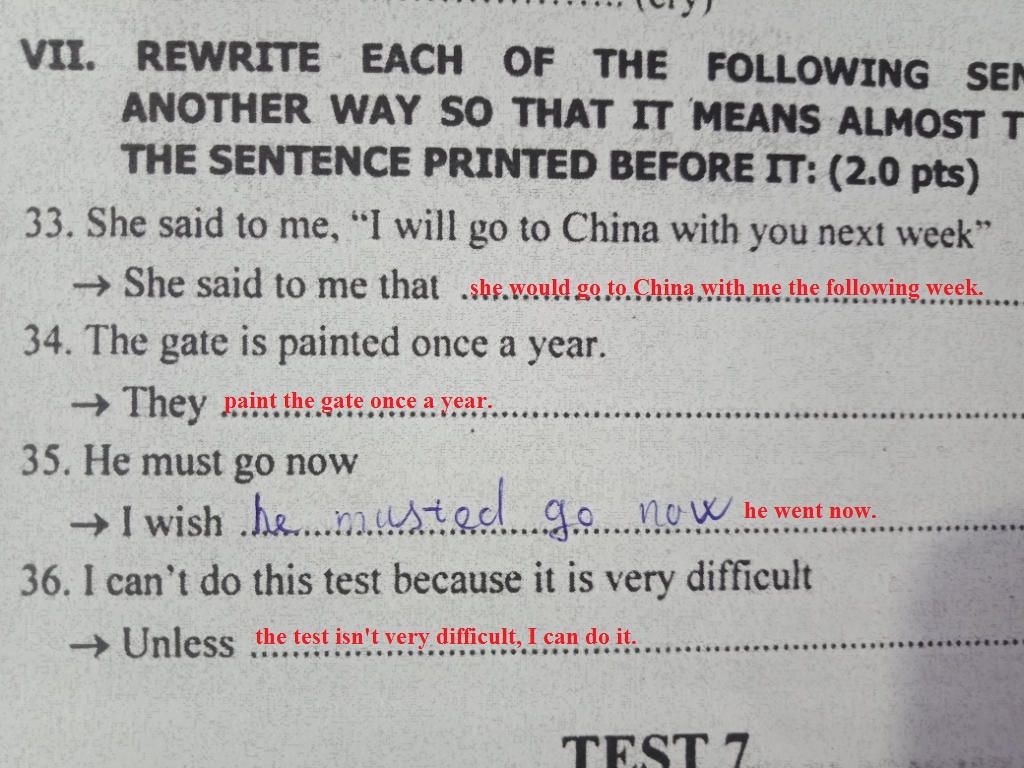 (cry)
VII. REWRITE EACH OF THE FOLLOWING
ANOTHER WAY SO THAT IT MEANS ALMOST
THE SENTENCE PRINTED BEFORE IT: (2.0 pts)
33. She said to me, “I will go to China with you next week”
→ She said to me that she would go to China with me the following week.
34. The gate is painted once a year.
→ They paint the gate once a year.
35. He must go now
→ I wish he musted go now he went now.
36. I can’t do this test because it is very difficult
→ Unless the test isn't very difficult, I can do it.
TEST 7